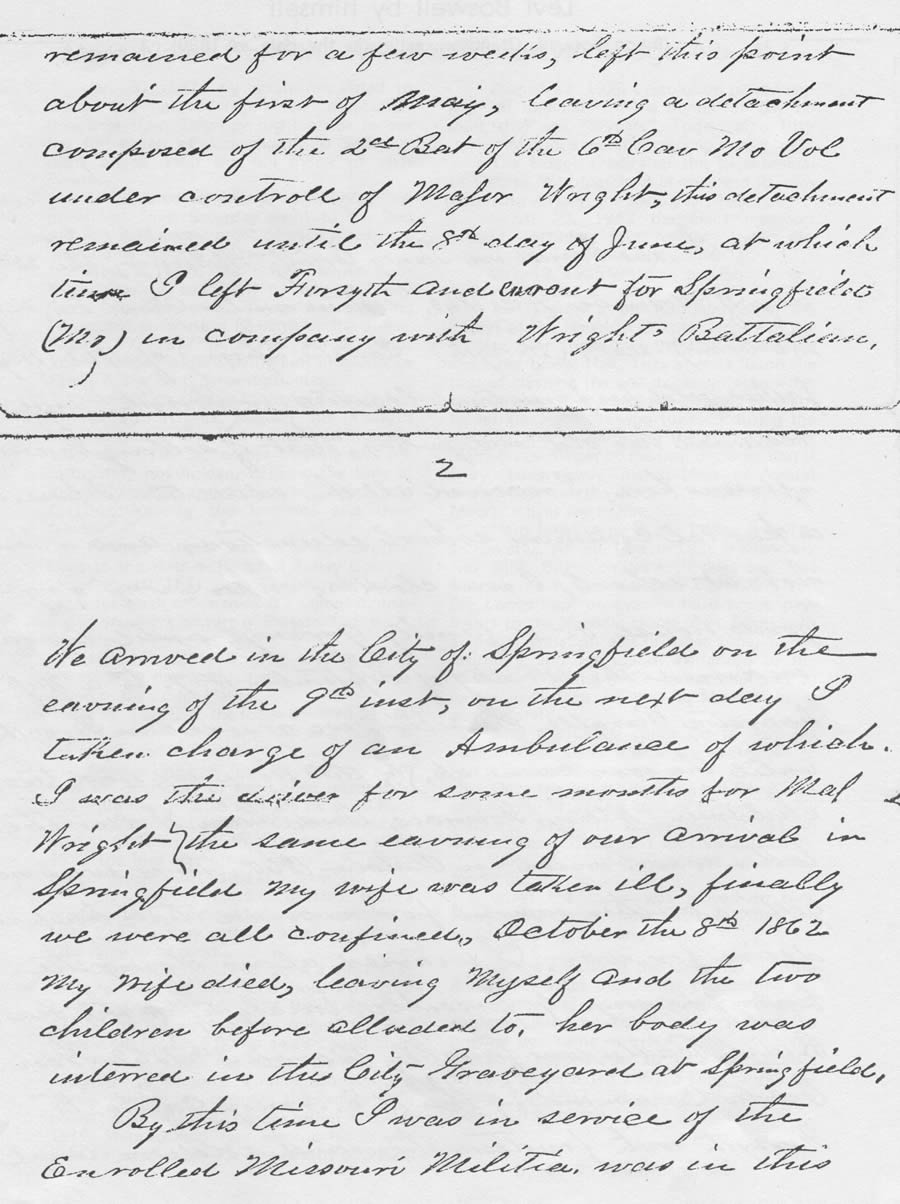 remained for a few weeks, left this point
about the first of May, leaving a detachment
composed of the 2nd Bat of the 6th Cav Mo Vol
under controll of Major Wright, this detachment
remained until the 8th day of June, at which
time I left Forsyth and went for Springfield
(Mo) in company with Wright's Battalian,
2
We arrived in the City of Springfield on the
eavning of the 9th inst, on the next day I
taken charge of an Ambulance of which
I was the driver for some months for Maj
Wright } the same eavning of our arrival in
Springfield my wife was taken ill, finally
we were all confined, October the 8th 1862
my wife died, leaving myself and the two
children before alluded to, her body was
interred in the City Graveyard at Springfield,
By this time I was in service of the
Enrolled Missouri Militia. was in this